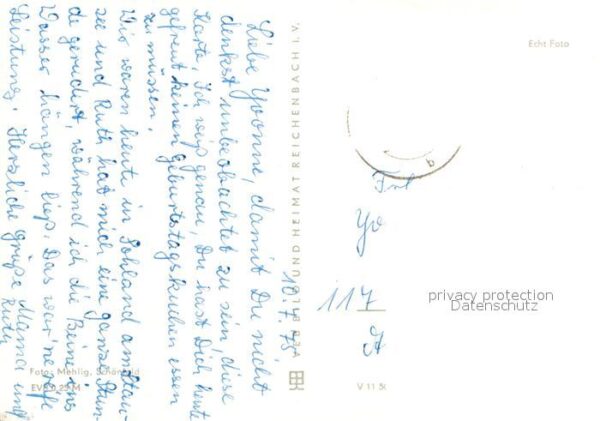 10.7.78
Liebe Yvonne, damit Du nicht
denkst unbeobachtet zu sein, diese
Karte. Ich weiß genau, Du hast Dich heute
gefreut keinen Geburtstagskuchen essen
zu müssen.
Wir waren heute in Sohland am Stau-
see und Ruth hat mich eine ganze Stun-
de gerudert, während ich die Beine ins
Wasser hängen ließ. Das war 'ne reife
Leistung. Herzliche Grüße Mama und
Ruth
VEB BILD UND HEIMAT REICHENBACH I. V.
Echt Foto
Yv
117
A
privacy protection
Datenschutz
Foto: Mehlig,
EVP 0,25 M
V 11 50